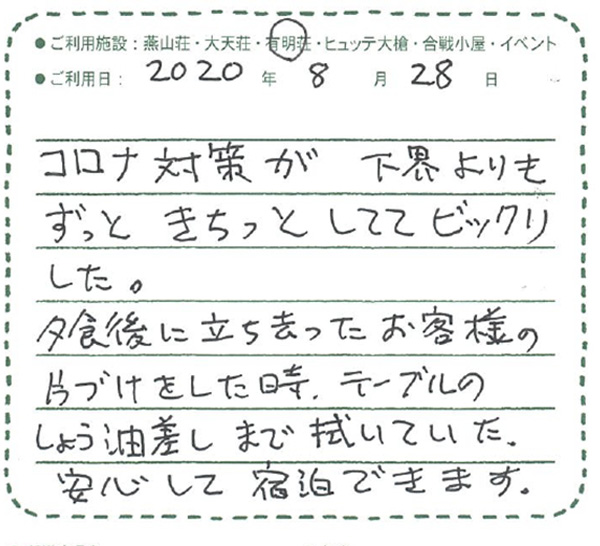 ●ご利用施設：燕山荘・大天荘・有明荘・ヒュッテ大槍・合戦小屋・イベント
●ご利用日： 2020 年 8 月 28 日
コロナ対策が 下界よりも
ずっと きちっと しててビックリ
した。
夕食後に立ち去ったお客様の
片づけをした時、テーブルの
しょう油差しまで拭いていた。
安心して宿泊できます。